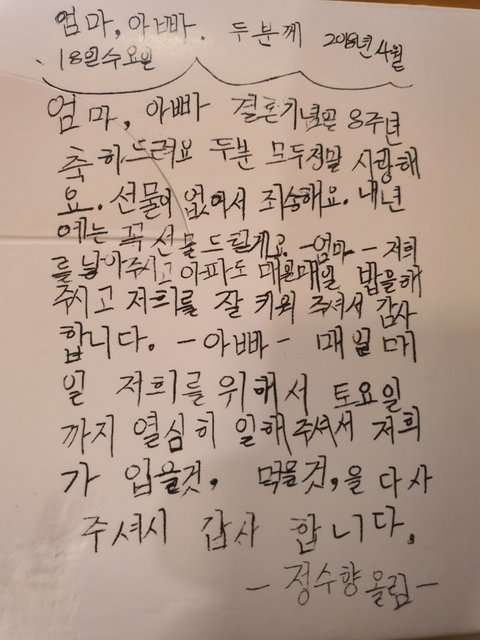 엄마, 아빠. 두분께 2018년 4월
18일 수요일
엄마, 아빠 결혼기념일 8주년
축하드려요 두분 모두정말 사랑해
요. 선물이 없어서 죄송해요. 내년
에는 꼭 선물 드릴게요. -엄마- 저희
를 낳아주시고 아파도 매일매일 밥을해
주시고 저희를 잘 키워 주셔서 감사
합니다. -아빠- 매일 매
일 저희를 위해서 토요일
까지 열심히 일해 주셔서 저희
가 입을것, 먹을것,을 다사
주셔서 감사 합니다.
-정수향 올림-